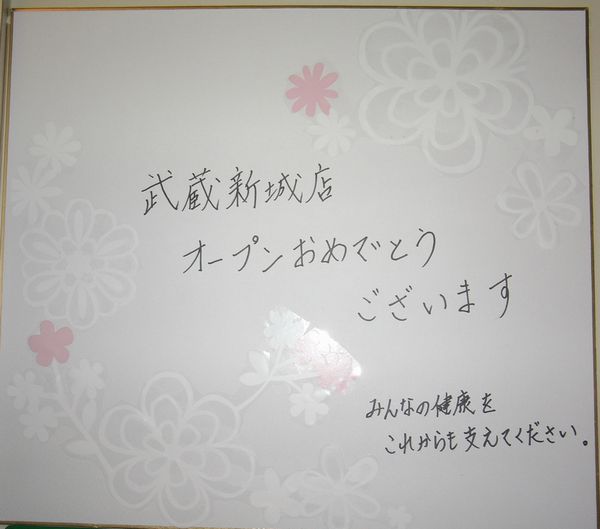 武蔵新城店
オープンおめでとう
ございます
みんなの健康を
これからも支えてください。